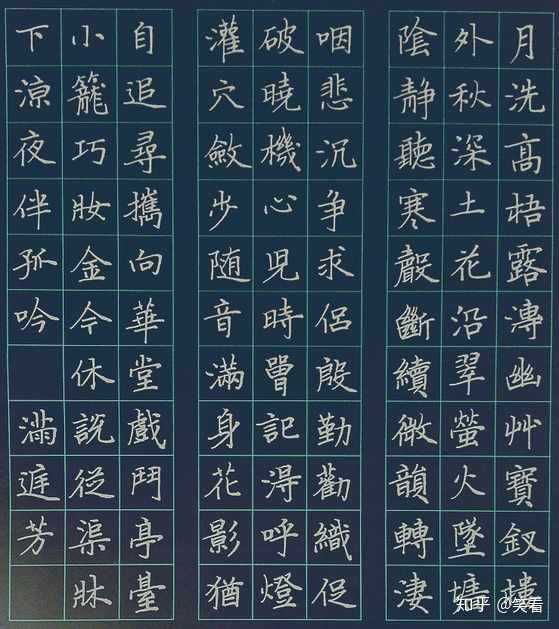 月洗高梧露漙幽艸寶釵樓
外秋深土花沿翠螢火墜墻
陰靜聽寒聲斷續微韻轉淒
咽悲沉争求侶殷勤勸織促
破曉機心児時曾記淂呼燈
灌穴斂步随音滿身花影猶
自追尋攜向華堂戲鬥亭臺
小籠巧妝金今休説從渠牀
下涼夜伴孤吟 滿庭芳
知乎 @笑看